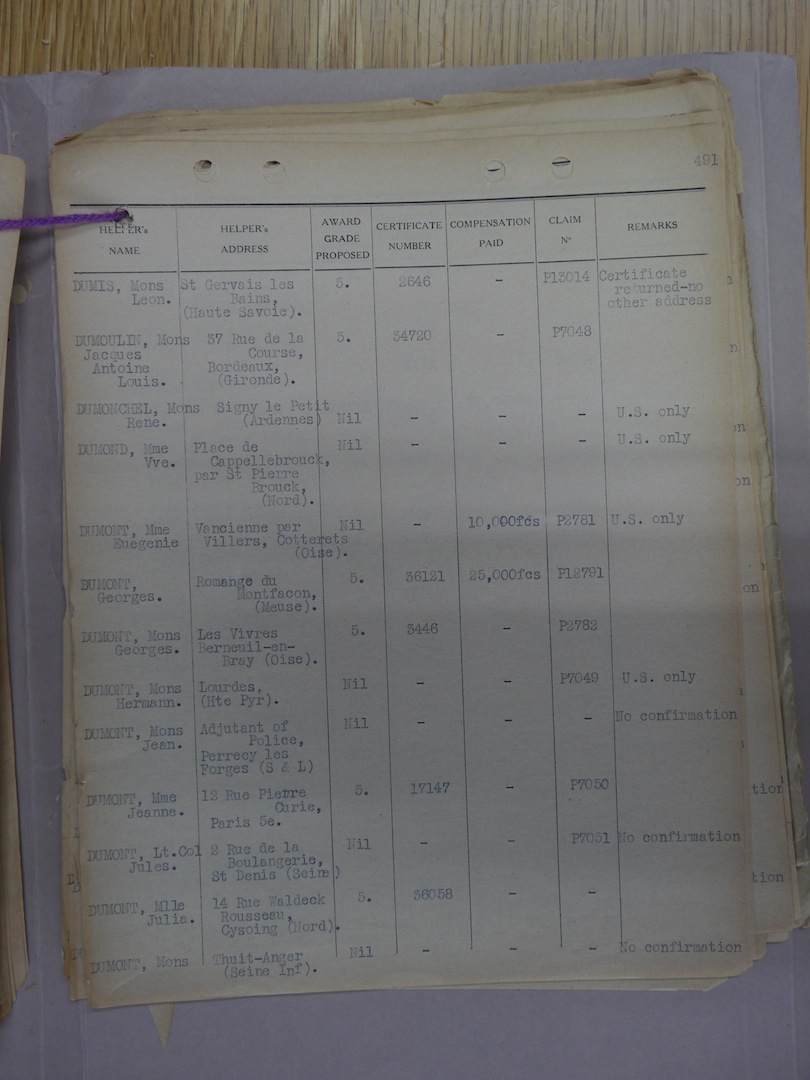 491
HELPER's NAME HELPER's ADDRESS AWARD GRADE PROPOSED CERTIFICATE NUMBER COMPENSATION PAID CLAIM N° REMARKS
DUMIS, Mons St Gervais les 5. 2646 - P13014 Certificate
Leon. Bains, returned-no
(Haute Savoie). other address
DUMOULIN, Mons 37 Rue de la 5. 34720 - P7048
Jacques Course,
Antoine Bordeaux,
Louis. (Gironde).
DUMONCHEL, Mons Signy le Petit
Rene. (Ardennes) Nil - - - U.S. only
DUMOND, Mme Place de Nil - - - U.S. only
Vve. Cappellebrouck,
par St Pierre
Brouck,
(Nord).
DUMONT, Mme Vancienne par Nil - 10,000fcs P2781 U.S. only
Euegenie Villers, Cotterets
(Oise).
DUMONT, Romange du 5. 36121 25,000fcs P12791
Georges. Montfacon,
(Meuse).
DUMONT, Mons Les Vivres 5. 3446 - P2782
Georges. Berneuil-en-
Bray (Oise).
DUMONT, Mons Lourdes, Nil - - P7049 U.S. only
Hermann. (Hte Pyr).
DUMONT, Mons Adjutant of Nil - - - No confirmation
Jean. Police,
Perrecy les
Forges (S & L)
DUMONT, Mme 12 Rue Pierre 5. 17147 - P7050
Jeanne. Curie,
Paris 5e.
DUMONT, Lt.Col 2 Rue de la Nil - - P7051 No confirmation
Jules. Boulangerie,
St Denis (Seine)
DUMONT, Mlle 14 Rue Waldeck 5. 36058 - -
Julia. Rousseau,
Cysoing (Nord).
DUMONT, Mons Thuit-Anger Nil - - - No confirmation
(Seine Inf).